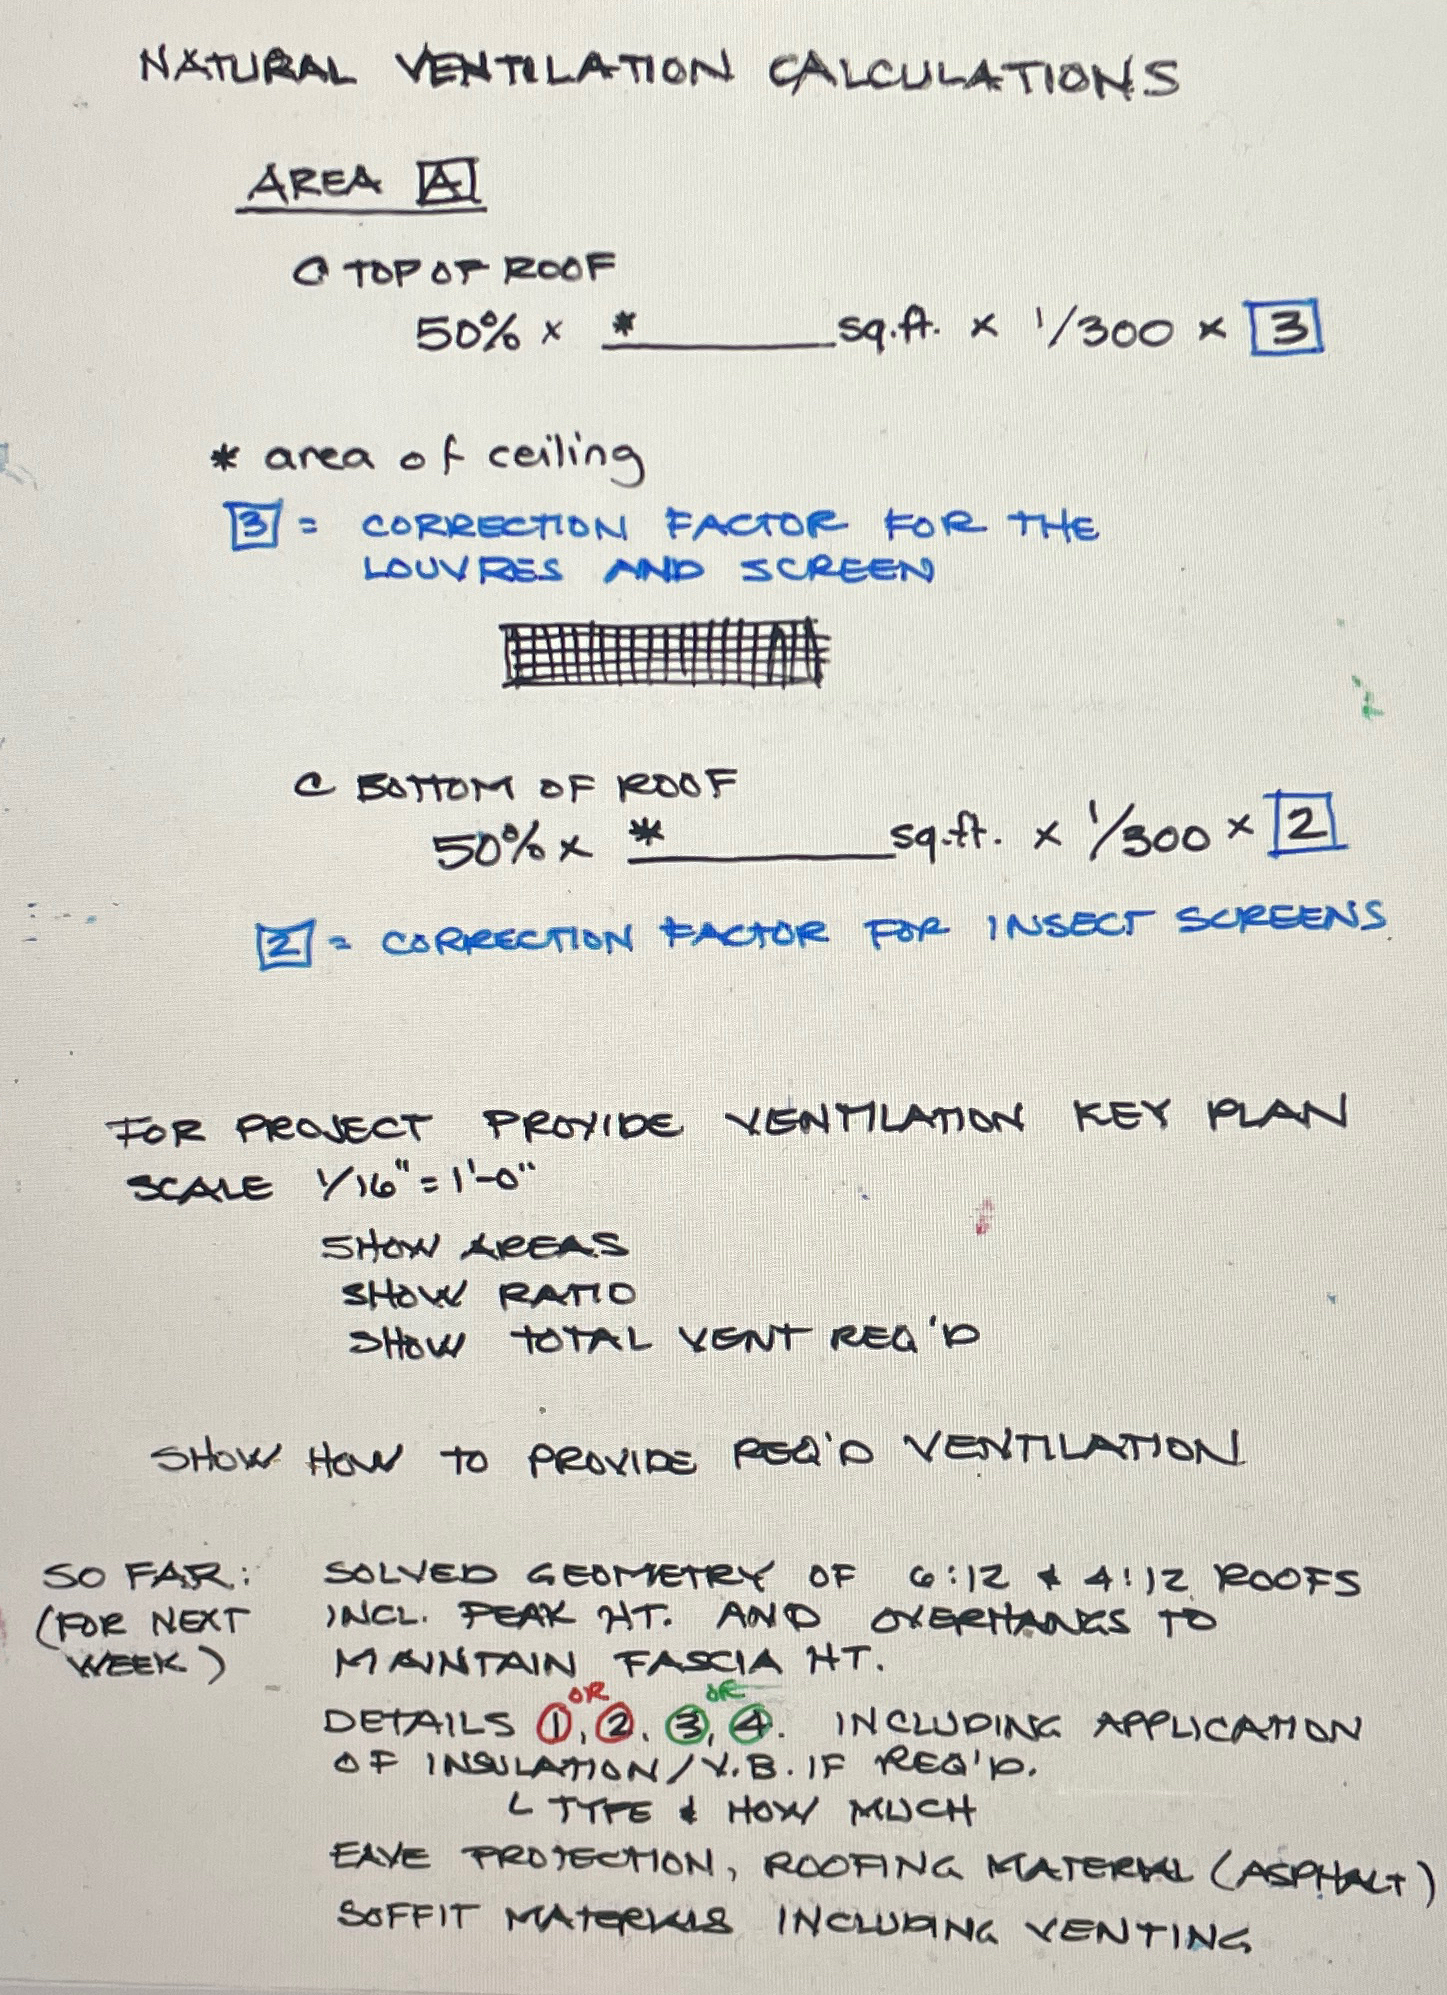 NATURAL VENTILATION CALCULATIONS
AREA A
@ TOP OF ROOF
50% x * ________ sq.ft. x 1/300 x 3
* area of ceiling
3 = CORRECTION FACTOR FOR THE
LOUVRES AND SCREEN
@ BOTTOM OF ROOF
50% x * ________ sq.ft. x 1/300 x 2
2 = CORRECTION FACTOR FOR INSECT SCREENS
FOR PROJECT PROVIDE VENTILATION KEY PLAN
SCALE 1/16" = 1'-0"
SHOW AREAS
SHOW RATIO
SHOW TOTAL VENT REQ'D
SHOW HOW TO PROVIDE REQ'D VENTILATION
SO FAR: SOLVED GEOMETRY OF 6:12 & 4:12 ROOFS
(FOR NEXT INCL. PEAK HT. AND OVERHANGS TO
WEEK) MAINTAIN FASCIA HT.
OR OR
DETAILS 1, 2, 3, 4. INCLUDING APPLICATION
OF INSULATION/V.B. IF REQ'D.
L TYPE & HOW MUCH
EAVE PROJECTION, ROOFING MATERIAL (ASPHALT)
SOFFIT MATERIALS INCLUDING VENTING